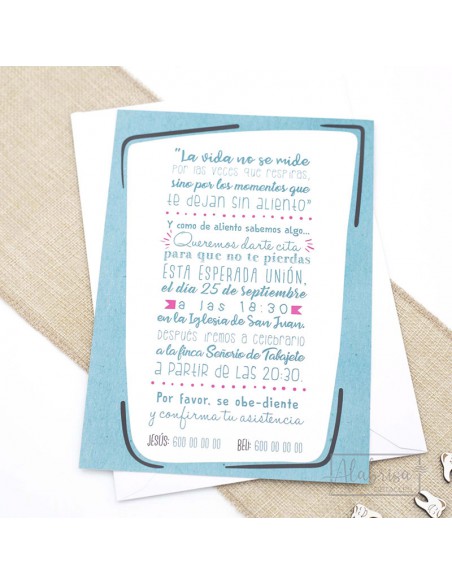 "La vida no se mide
POR LAS VECES QUE RESPIRAS,
sino por los momentos que
TE DEJAN SIN ALIENTO"
Y como de aliento sabemos algo...
Queremos darte cita
para que no te pierdas
ESTA ESPERADA UNIÓN,
el día 25 de septiembre
a las 18:30
en la Iglesia de San Juan.
DESPUÉS IREMOS A CELEBRARLO
a la finca Señorío de Tabajete
A PARTIR DE LAS 20:30.
Por favor, se obe-diente
y confirma tu asistencia
JESÚS: 600 00 00 00 BELI: 600 00 00 00